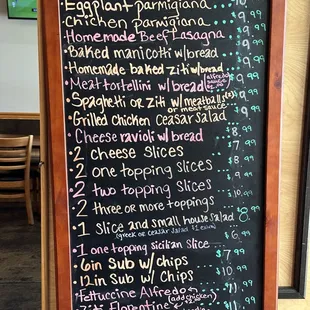 Eggplant parmigiana
Chicken parmigiana 9.99
Homemade Beef Lasagna 9.99
Baked manicotti w/bread 9.99
Homemade baked ziti w/bread 9.99
Meat tortellini w/bread alfredo sauce 9.99
Spaghetti or ziti w/meatballs(2) 9.99
or meat sauce
Grilled Chicken Ceasar Salad 9.99
Cheese ravioli w/bread 8.99
2 cheese Slices 7.99
2 one topping Slices 8.99
2 two topping Slices 9.99
2 three or more toppings 10.99
1 Slice and small house Salad 8.99
(greek or ceasar Salad $1 extra)
1 one topping sicilian slice 6.99
6in Sub w/ chips $7.99
12in Sub w/ Chips 10.99
Fettuccine Alfredo (add chicken) 11.99
Ziti Florentine